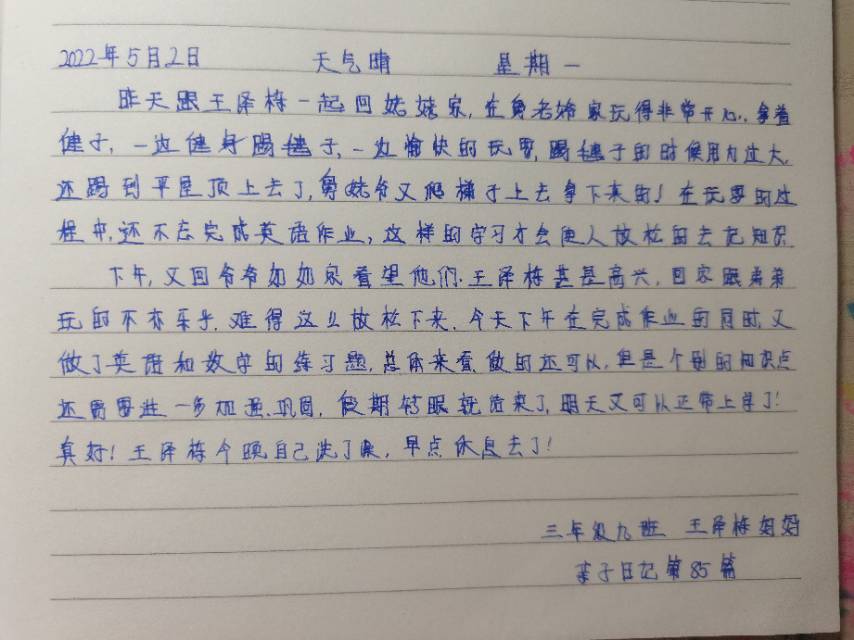 2022年5月2日 天气晴 星期一
昨天跟王泽栋一起回姥姥家,在舅老爷家玩得非常开心,拿着
毽子,一边踢毽子,一边愉快的玩耍,踢毽子的时候用力过大,
还踢到平屋顶上去了,舅姥爷又爬梯子上去拿下来的!在玩耍的过
程中,还不忘完成英语作业,这样的学习才会使人放松的去记知识
下午,又回爷爷奶奶家看望他们.王泽栋甚是高兴,回家跟弟弟
玩的不亦乐乎.难得这么放松下来.今天下午在完成作业的同时,又
做了英语和数学的练习题,总体来看,做的还可以,但是个别的知识点
还需要进一步加强、巩固,假期转眼就结束了,明天又可以正常上学了!
真好!王泽栋今晚自己洗了澡,早点休息去了!
三年级九班 王泽栋妈妈
亲子日记第85篇